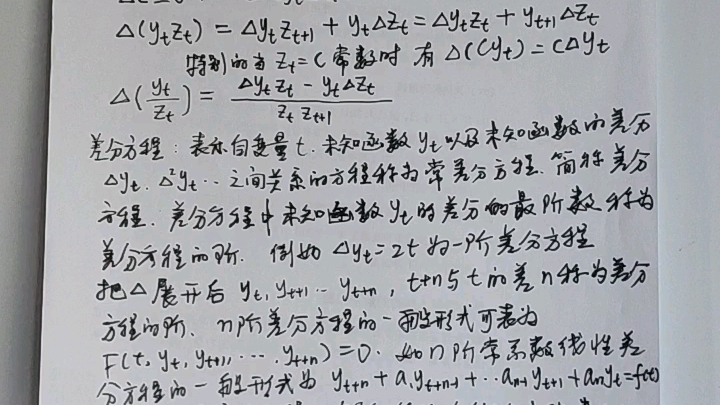 Δ(y_t z_t) = Δy_t z_{t+1} + y_t Δz_t = Δy_t z_t + y_{t+1} Δz_t
特别的当 z_t = C 常数时 有 Δ(Cy_t) = CΔy_t
Δ(y_t/z_t) = (Δy_t z_t - y_t Δz_t)/(z_t z_{t+1})
差分方程: 表示自变量 t. 未知函数 y_t 以及未知函数的差分
Δy_t. Δ²y_t ... 之间关系的方程称为常差分方程. 简称差分
方程. 差分方程中未知函数 y_t 的差分的最阶数称为
差分方程的阶. 例如 Δy_t = 2t 为一阶差分方程
把Δ展开后 y_t, y_{t+1} ... y_{t+n}, t+n与t的差n称为差分
方程的阶. n阶差分方程的一般形式可表为
F(t, y_t, y_{t+1}, ... y_{t+n}) = 0. 如n阶常系数线性差
分方程的一般形式为 y_{t+n} + a_1 y_{t+n-1} + ... a_{n-1} y_{t+1} + a_n y_t = f(t)